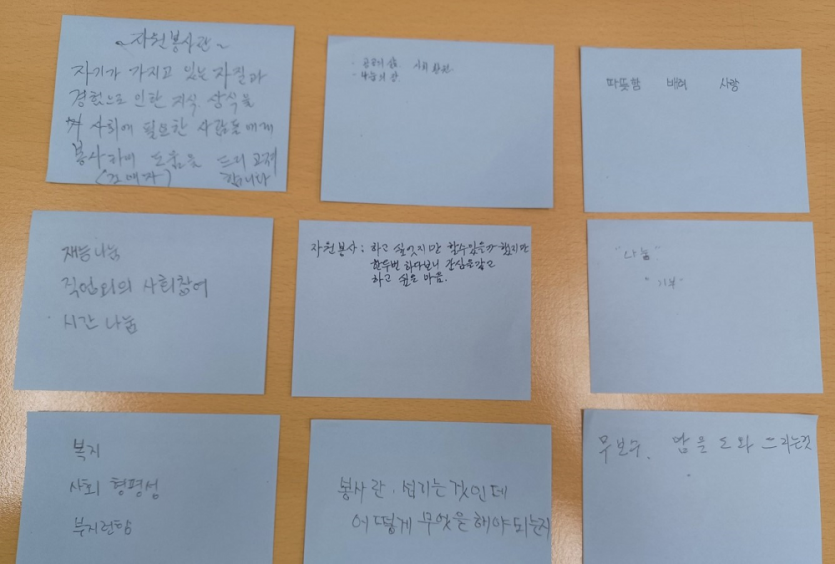 ~자원봉사란~
자기가 가지고 있는 자질과
경험으로 인한 지식 상식을
사회에 필요한 사람들에게
봉사하며 도움을 드리고져
합니다
사회 환원
나눔의 삶
따뜻함 배려 사랑
재능나눔
직업외의 사회참여
시간 나눔
자원봉사 : 하고 싶었지만 할수있을까 했지만
한두번 하다보니 관심을갖고
하고 싶은 마음.
"나눔"
"기부"
복지
사회 형평성
부지런함
봉사란. 섬기는것인데
어떻게 무엇을해야 되는지
무보수. 남을 도와 드리는것